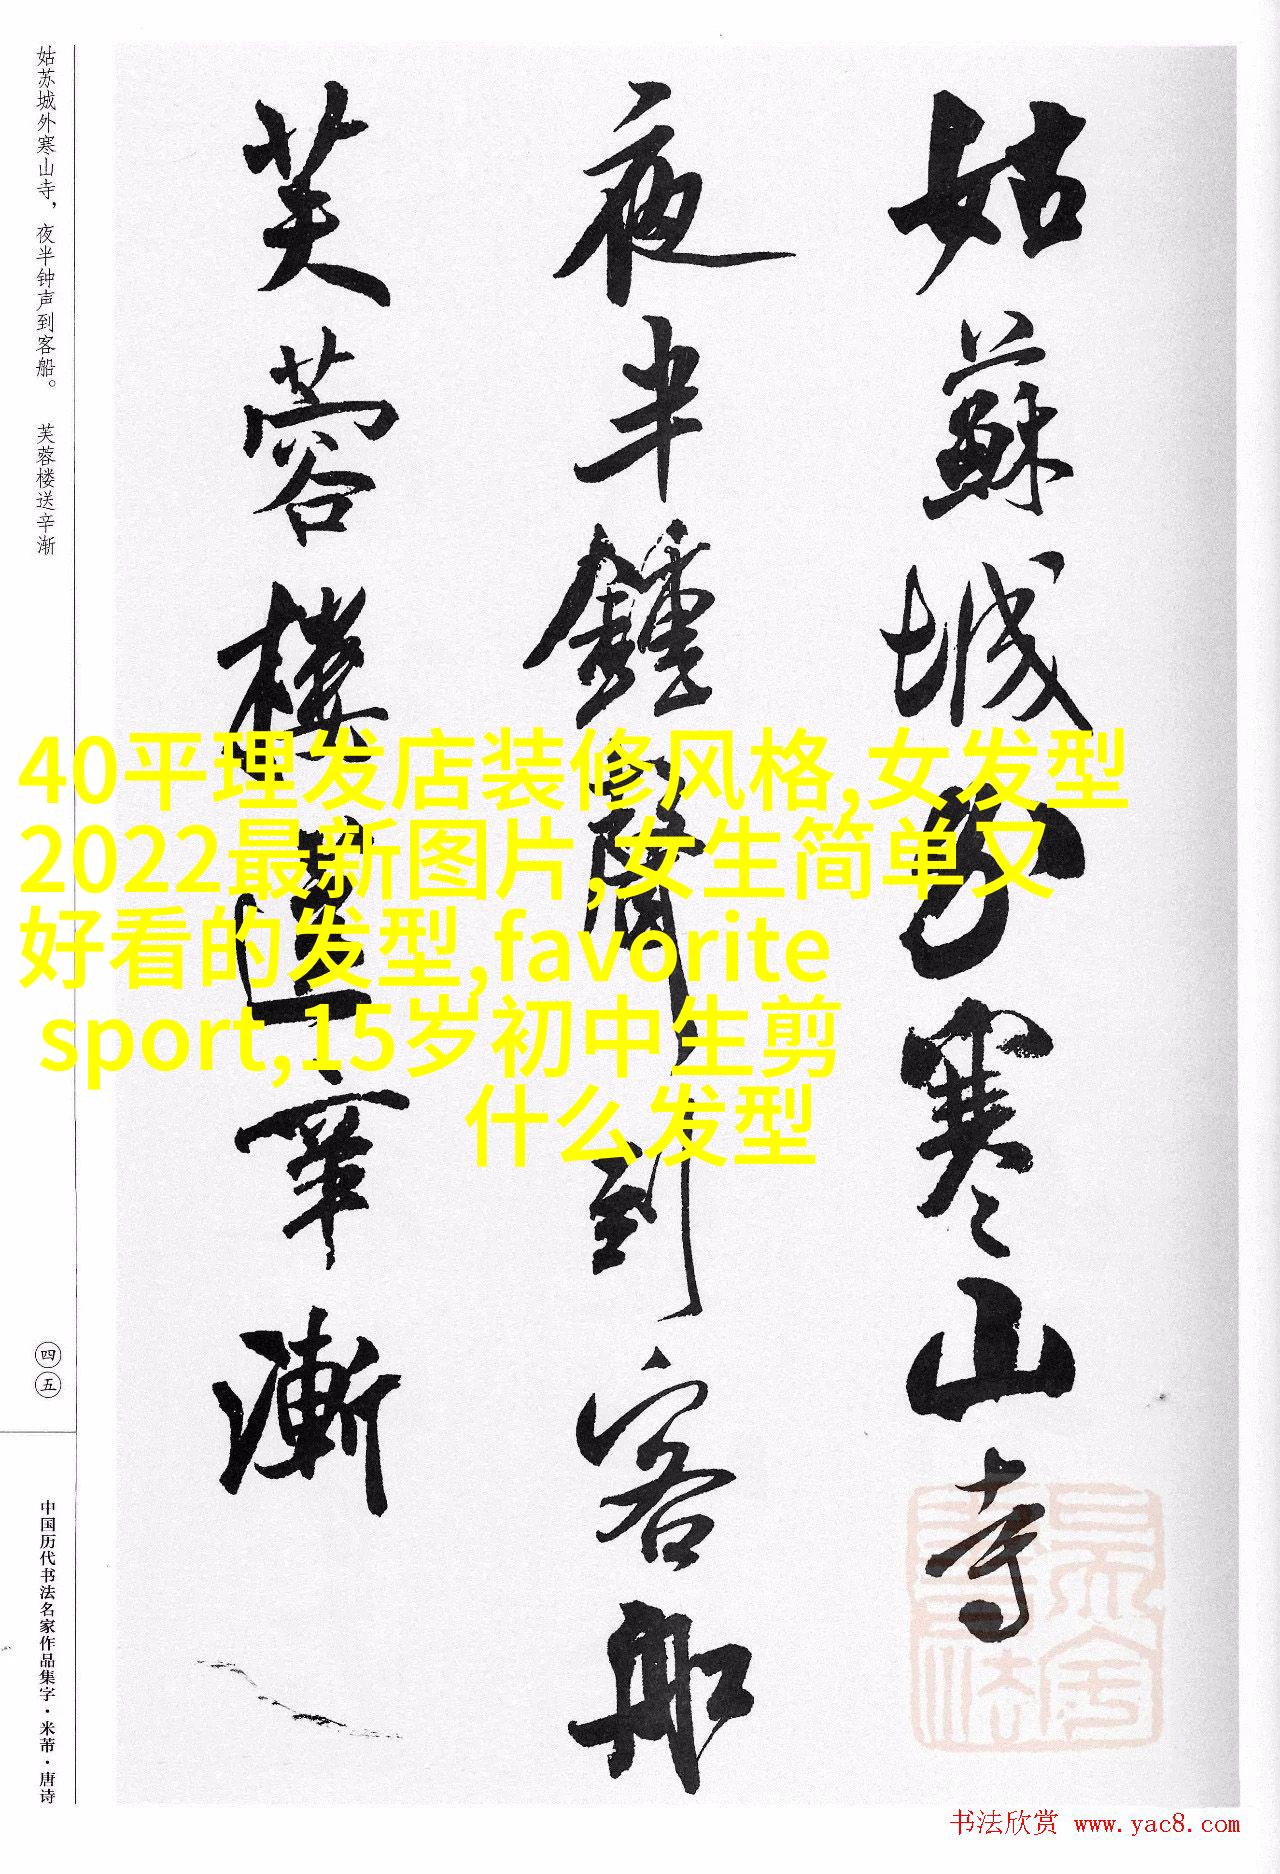 姑苏城外寒山寺，夜半钟声到客船。 芙蓉楼送辛渐
姑蘇城外寒山寺
夜半鍾聲到客船
芙蓉樓送辛漸
40平理发店装修风格,女发型
2022最新图片,女生简单又
好看的发型,favorite
sport,15岁初中生剪
什么发型
四五
中国历代书法名家作品集字·米芾·唐诗
书法欣赏 www.yac8.com